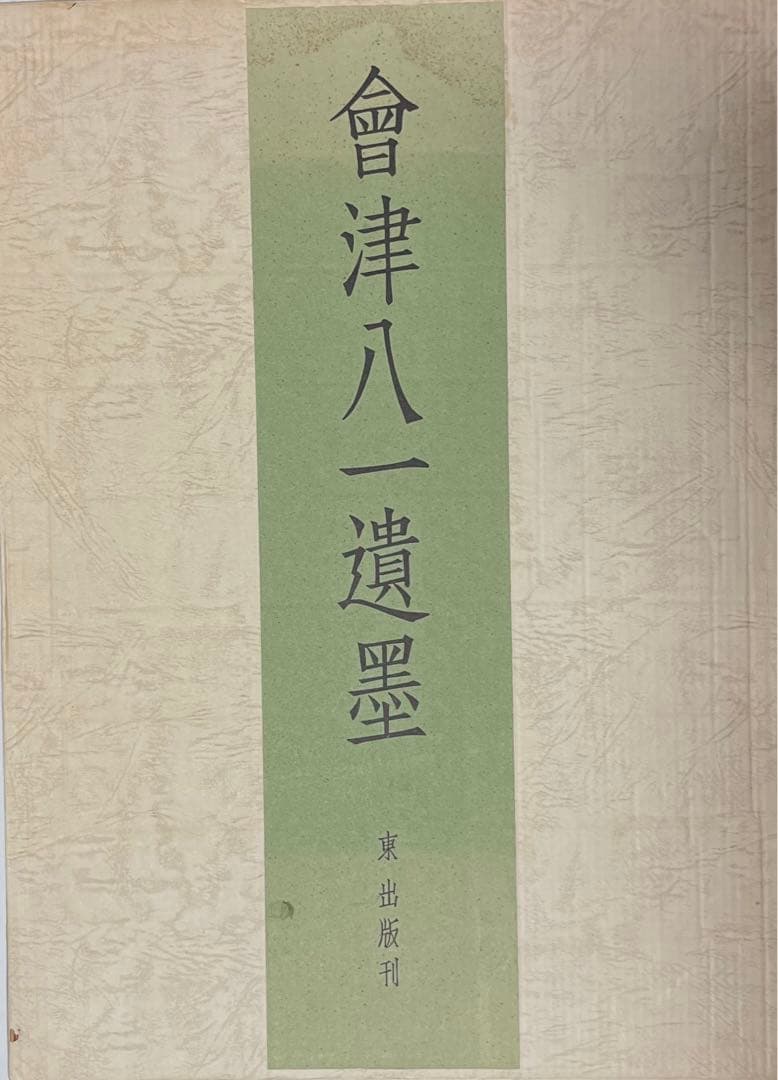 會津八一遺墨
東出版刊